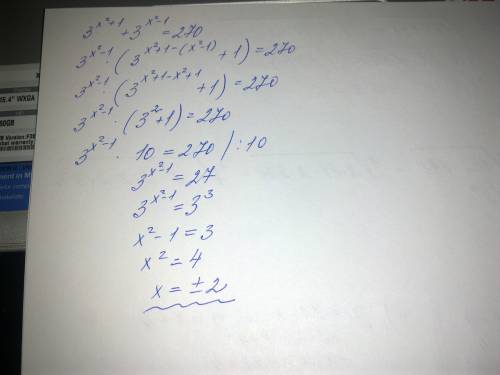 3^{x²+1} + 3^{x²-1} = 270
3^{x²-1} · (3^{x²+1-(x²-1)} + 1) = 270
3^{x²-1} · (3^{x²+1-x²+1} + 1) = 270
3^{x²-1} · (3² + 1) = 270
3^{x²-1} · 10 = 270 / :10
3^{x²-1} = 27
3^{x²-1} = 3³
x² - 1 = 3
x² = 4
x = ± 2